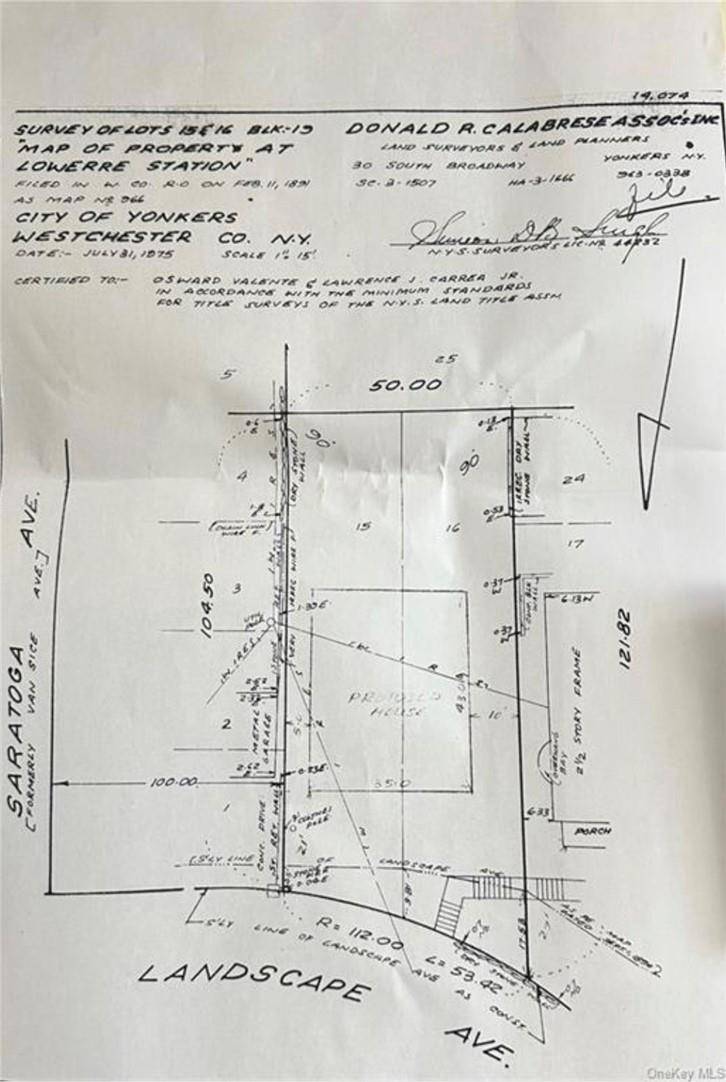 19,074
SURVEY OF LOTS 15 & 16 BLK:-19
"MAP OF PROPERTY AT
LOWERRE STATION"
FILED IN W. CO. R.O ON FEB. 11, 1891
AS MAP Nº 966
CITY OF YONKERS
WESTCHESTER CO. N.Y.
DATE:- JULY 31, 1975 SCALE 1"= 15'
DONALD R. CALABRESE ASSOC'S INC
LAND SURVEYORS & LAND PLANNERS
30 SOUTH BROADWAY YONKERS N.Y.
SC-3-1507 HA-3-1666 963-0338
file
N.Y.S. SURVEYORS LIC. Nº 44832
CERTIFIED TO:- OSWARD VALENTE & LAWRENCE J. CARREA JR.
IN ACCORDANCE WITH THE MINIMUM STANDARDS
FOR TITLE SURVEYS OF THE N.Y.S. LAND TITLE ASSN
5
25
50.00
90°
90°
4
(DRY STONE)
WALL
15
16
24
17
[CHAIN LINK
WIRE F.
3
104.50
1.30 E
0.37
0.37
6.13 W
121.82
SARATOGA AVE.
[FORMERLY VAN SICE AVE.]
WIRES
PROPOSED
HOUSE
43.0
10'
35.0
2
METAL
GARAGE
2.62
0.23 E
100.00
1
CONC. DRIVE
ST. RET. WALL
2½ STORY FRAME
OVERHANG
BAY
6.33
PORCH
[S'LY LINE OF LANDSCAPE AVE
21'
17.53
R= 112.00 L= 53.42
S'LY LINE OF LANDSCAPE AVE AS CONST.
(DRY STONE WALL
LANDSCAPE AVE.
OneKey MLS